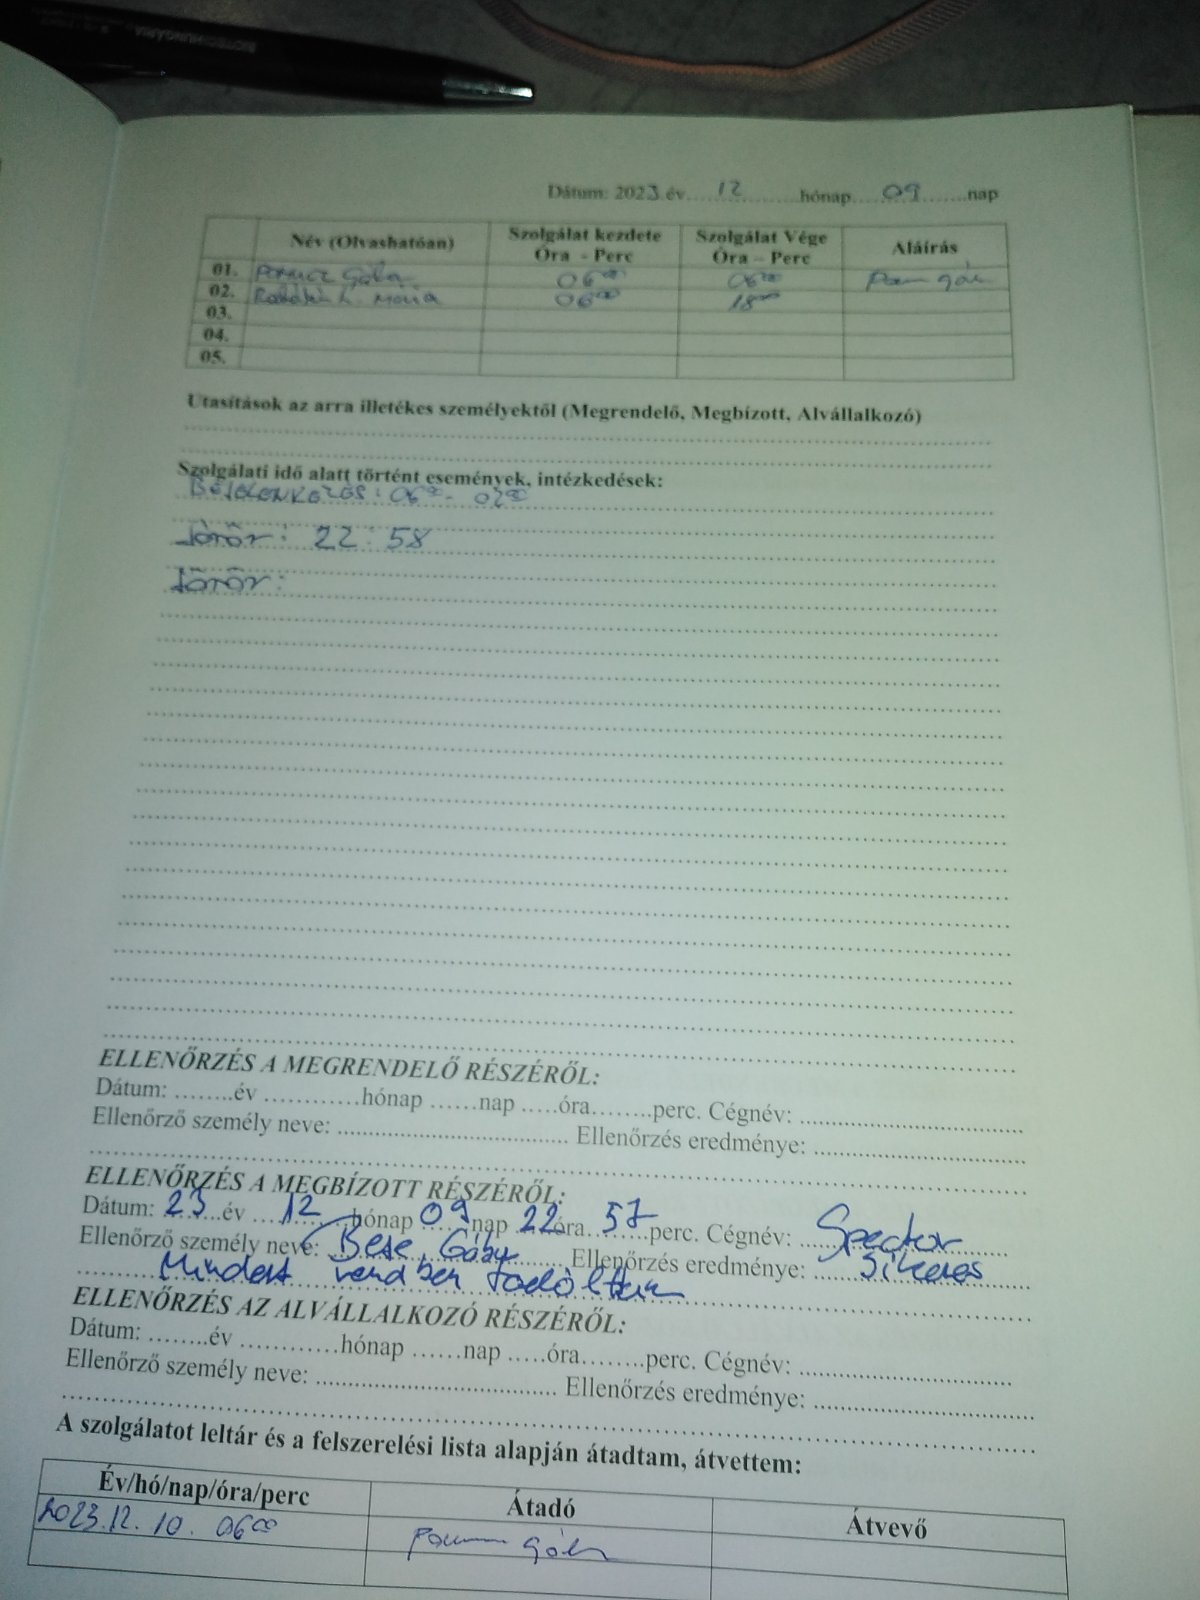 Dátum: 2023 év 12 hónap 09 nap
Név (Olvashatóan) Szolgálat kezdete Óra - Perc Szolgálat Vége Óra – Perc Aláírás
01. 06⁰⁰ 06⁰⁰
02. Mária 06⁰⁰ 18⁰⁰
03.
04.
05.
Utasítások az arra illetékes személyektől (Megrendelő, Megbízott, Alvállalkozó)
Szolgálati idő alatt történt események, intézkedések:
BEJELENKEZÉS: 06⁰⁰ -
Járőr: 22:58
Járőr:
ELLENŐRZÉS A MEGRENDELŐ RÉSZÉRŐL:
Dátum: ........év ............hónap ......nap .....óra........perc. Cégnév: ........
Ellenőrző személy neve: ........ Ellenőrzés eredménye: ........
ELLENŐRZÉS A MEGBÍZOTT RÉSZÉRŐL:
Dátum: 23 év 12 hónap 09 nap 22 óra 57 perc. Cégnév: Spector
Ellenőrző személy neve: Bese Gábor Ellenőrzés eredménye: Sikeres
Mindent rendben
ELLENŐRZÉS AZ ALVÁLLALKOZÓ RÉSZÉRŐL:
Dátum: ........év ............hónap ......nap .....óra........perc. Cégnév: ........
Ellenőrző személy neve: ........ Ellenőrzés eredménye: ........
A szolgálatot leltár és a felszerelési lista alapján átadtam, átvettem:
Év/hó/nap/óra/perc Átadó Átvevő
2023.12.10. 06⁰⁰